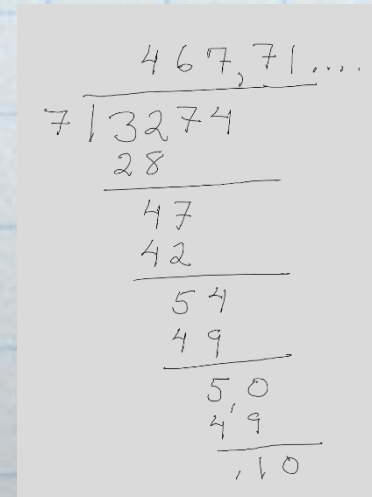 467,71....
7|3274
28
47
42
54
49
5,0
4,9
,10